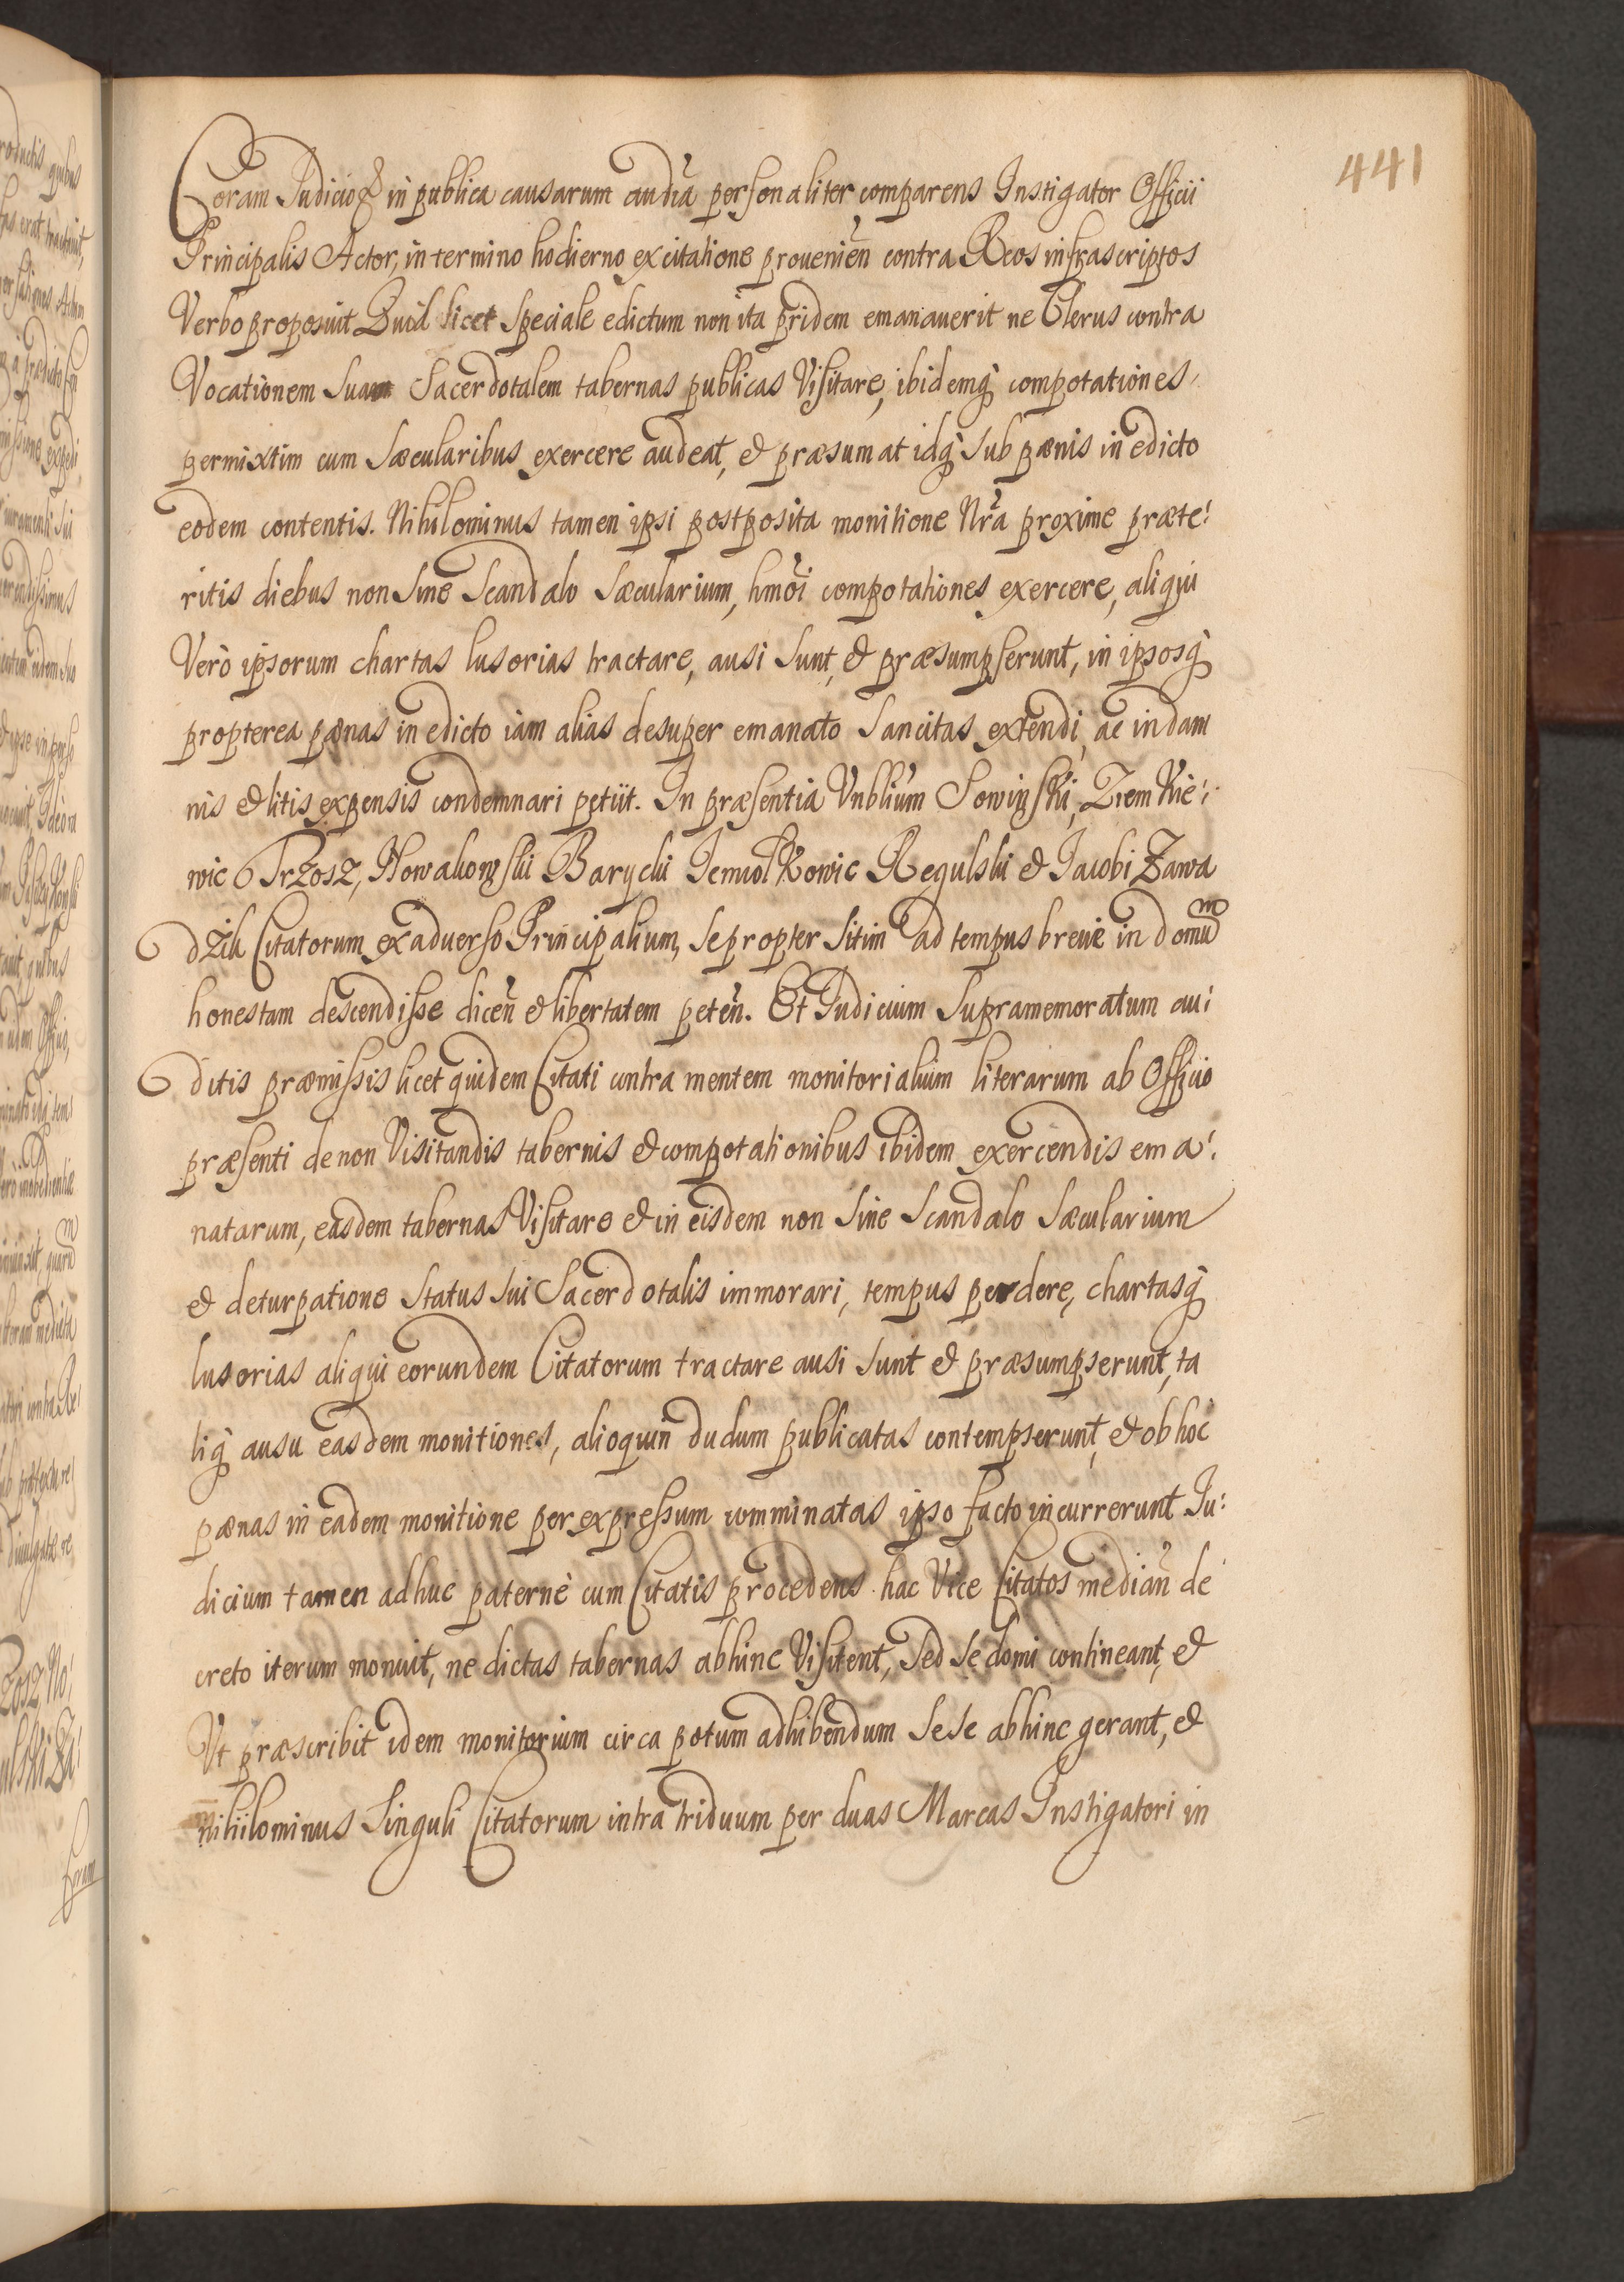 441
Coram Judicio & in publica causarum audīa personaliter comparens Instigator Officii
Principalis Actor, in termino hodierno ex citatione prouenień contra Reos infrascriptos
Verbo proposuit Quod licet speciale edictum non ita pridem emanauerit ne Clerus contra
Vocationem suam Sacerdotalem tabernas publicas Visitare, ibidemq̀ compotationes,
permixtim cum sæcularibus exercere audeat, & præsumat idq̀ sub pænis in edicto
eodem contentis. Nihilominus tamen ipsi postposita monitione Nr̃a proxime præte:
ritis diebus non sine scandalo sæcularium, hmõi compotationes exercere, aliqui
Verò ipsorum chartas lusorias tractare, ausi sunt, & præsumpserunt, in ipsosq̀
propterea pænas in edicto iam alias desuper emanato sancitas extendi, ac in dam
nis & litis expensis condemnari petiit. In præsentia Vnblium Sowinski, Ziemkie:
wic Trzosz, Nowakowski Barycki Jemiolkowic Regulski & Jacobi Zawa
dzki Citatorum ex aduerso Principalium, se propter sitim ad tempus breue in domū
m
honestam descendisse diceñ & libertatem peteñ. Et Judicium supramemoratum au:
ditis præmissis licet quidem Citati contra mentem monitorialium literarum ab Officio
præsenti de non Visitandis tabernis & compotationibus ibidem exercendis ema:
natarum, easdem tabernas Visitare & in eisdem non sine scandalo sæcularium
& deturpatione status sui Sacerdotalis immorari, tempus perdere, chartasq̀
lusorias aliqui eorundem Citatorum tractare ausi sunt & præsumpserunt, ta
liq̀ ausu easdem monitiones, alioquin dudum publicatas contempserunt, & ob hoc
pænas in eadem monitione per expressum comminatas ipso facto incurrerunt Ju:
dicium tamen adhuc paternè cum Citatis procedens hac Vice Citatos mediañ de
creto iterum monuit, ne dictas tabernas abhinc Visitent, sed se domi contineant, &
Vt præscribit idem monitorium circa potum adhibendum sese abhinc gerant, &
nihilominus singuli Citatorum intra triduum per duas Marcas Instigatori in